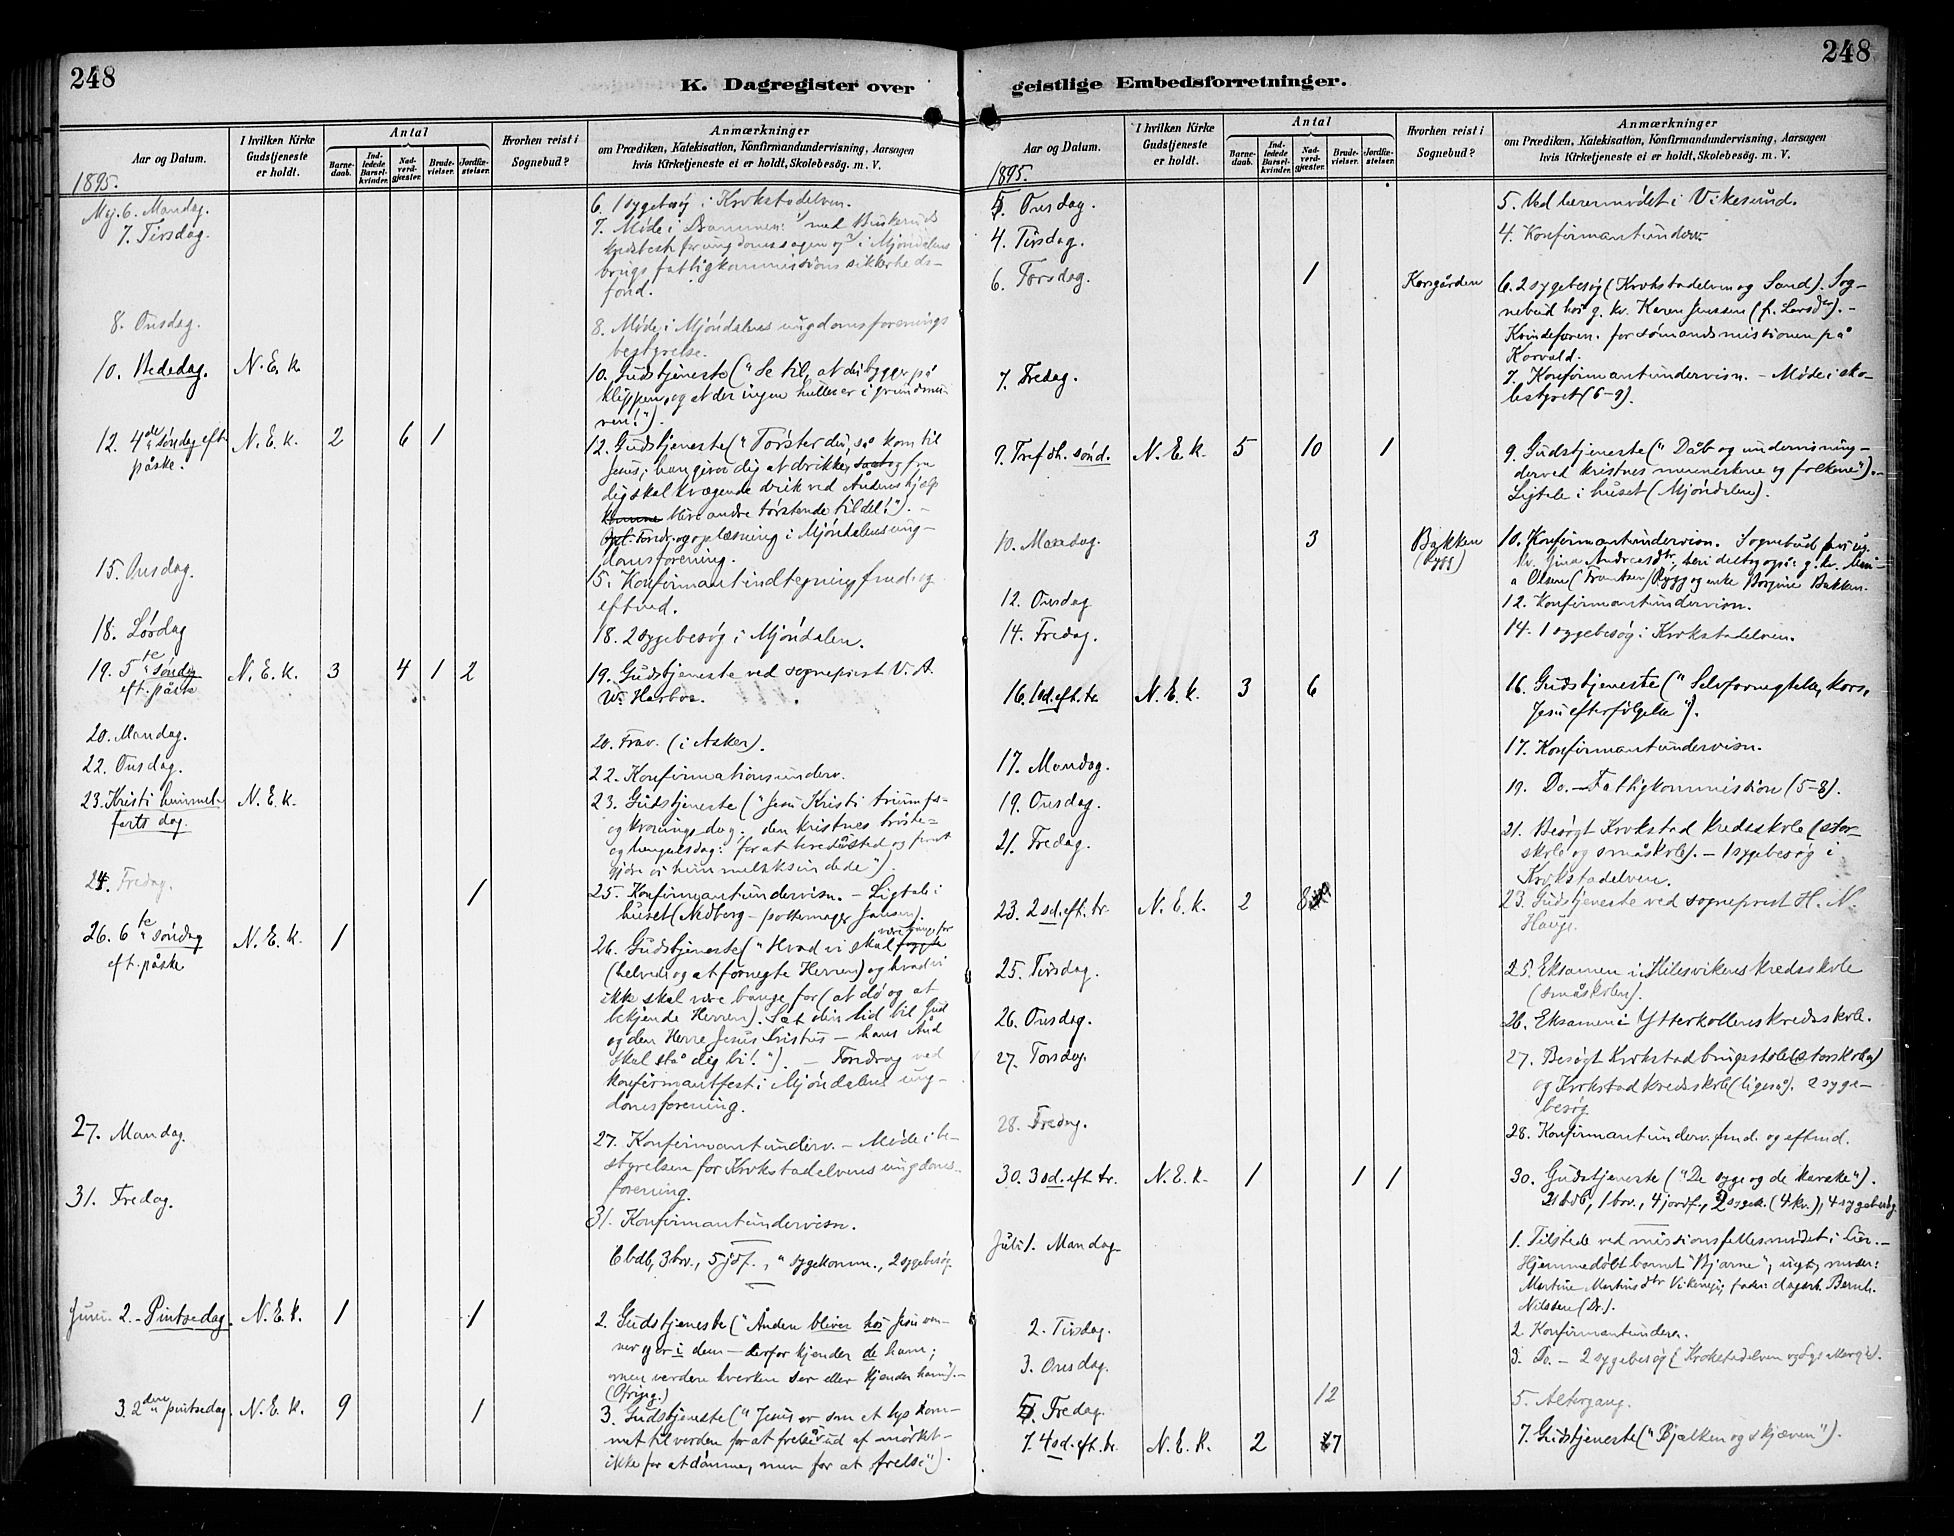 248
K. Dagregister over
Aar og Datum.
I hvilken Kirke Gudstjeneste er holdt.
Antal
Barne-daab.
Ind-ledede Barsel-kvinder.
Nad-verd-gjæster.
Brude-vielser.
Jordfæ-stelser.
Hvorhen reist i Sognebud?
Anmærkninger
om Prædiken, Katekisation, Konfirmandundervisning, Aarsagen
hvis Kirketjeneste ei er holdt, Skolebesøg. m. V.
1895.
Mj. 6. Mandag.
6. 1 sygebesøg i Krokstadelven.
7. Tirsdag.
7. Møde i Drammen: med Buskeruds
ungdomssagen og i Mjøndalens
brugs fattigkommissions sikkerheds-
fond.
8. Onsdag.
8. Møde i Mjøndalens ungdomsforenings
bestyrelse.
10. Bededag. N. E. k.
10. Gudstjeneste ("Se til, at du bygger på
klippen, og at der ingen huller er i grundmu-
ren!").
12. 4de søndag eft. påske. N. E. k. 2 6 1
12. Gudstjeneste ("Tørster du, så kom til
Jesus; han giver dig at drikke, og fra
dig skal kvægende drik ved Åndens hjælp
blive andre tørstende til del!"). -
Fordr. og oplæsning i Mjøndalens ung-
domsforening.
15. Onsdag.
15. Konfirmantindtegning fmd. og
eftmd.
18. Lørdag
18. 2 sygebesøg i Mjøndalen.
19. 5te søndag eft. påske N. E. k. 3 4 1 2
19. Gudstjeneste ved sogneprest V. A.
W. Harboe.
20. Mandag.
20. Frav. (i Asker).
22. Onsdag.
22. Konfirmationsunderv.
23. Kristi himmel-
farts dag. N. E. k.
23. Gudstjeneste ("Jesu Kristi triumf-
og kronings dag; den kristnes trøste-
og længselsdag: for at berede sted og for at
gjøre os himmelsksindede").
24. Fredag. 1
25. Konfirmantundervisn. - Ligtale i
huset (Nedberg - pottemager Jansen).
26. 6te søndag eft. påske N. E. k. 1
26. Gudstjeneste ("Hvad vi skal være bange for
(helvede og at fornegte Herren) og hvad vi
ikke skal være bange for (at dø og at
bekjende Herren). Sæt din lid til Gud
og den Herre Jesus Kristus - hans Ånd
skal stå dig bi!"). - Foredrag ved
konfirmantfest i Mjøndalens ung-
domsforening.
27. Mandag.
27. Konfirmantunderv. - Møde i be-
styrelsen for Krokstadelvens ungdoms-
forening.
31. Fredag.
31. Konfirmantundervisn.
6 bdb, 3 brv., 5 jdf., " sygekomm., 2 sygebesøg.
Juni. 2. Pintsedag. N. E. k. 1 1
2. Gudstjeneste ("Ånden bliver hos Jesu ven-
ner og er i dem - derfor kjender de ham;
men verden hverken ser eller kjender ham"). -
(Ofring.)
3. 2den pintsedag. N. E. k. 9 1
3. Gudstjeneste ("Jesus er som et lys kom-
met til verden for at frelse ud af mørket -
ikke for at dømme, men for at frelse").
248
geistlige Embedsforretninger.
Aar og Datum.
I hvilken Kirke Gudstjeneste er holdt.
Antal
Barne-daab.
Ind-ledede Barsel-kvinder.
Nad-verd-gjæster.
Brude-vielser.
Jordfæ-stelser.
Hvorhen reist i Sognebud?
Anmærkninger
om Prædiken, Katekisation, Konfirmandundervisning, Aarsagen
hvis Kirketjeneste ei er holdt, Skolebesøg. m. V.
1895.
5. Onsdag.
5. Ved lærermødet i Vikesund.
4. Tirsdag.
4. Konfirmantunderv.
6. Torsdag. 1 Korsgården
6. 2 sygebesøg (Krokstadelven og Sand). Sog-
nebud hos g. kv. Karen Jenssen (f. Larsdtr). -
Kvindeforen. for sømandsmissionen på
Horvald.
7. Fredag.
7. Konfirmantundervisn. - Møde i sko-
lestyret (6-9).
9. Tref. dh. sønd. N. E. k. 5 10 1
9. Gudstjeneste ("Dåb og undervisning -
derved kristnes menneskene og folkene"). -
Ligtale i huset (Mjøndalen).
10. Mandag. 3 Bakken (Rygg)
10. Konfirmantundervisn. Sognebud hos ug.
kv. Gina Andreasdtr, heri deltog også g. kv.
Olsen (Frantsen) Rygg og enke Borgine Bakken.
12. Onsdag
12. Konfirmantundervisn.
14. Fredag.
14. 1 sygebesøg i Krokstadelven.
16. 1 sd. eft. tr. N. E. k. 3 6
16. Gudstjeneste ("Selvfornegtelse, kors,
Jesu efterfølgelse").
17. Mandag.
17. Konfirmantundervisn.
19. Onsdag.
19. Do. - Fattigkommission (5-8).
21. Fredag.
21. Besøgt Krokstad kredsskole (stor-
skole og småskole). - 1 sygebesøg i
Krokstadelven.
23. 2 sd. eft. tr. N. E. k. 2 8
23. Gudstjeneste ved sogneprest H. N.
Hauge.
25. Tirsdag.
25. Eksamen i Hilesvikens kredsskole
(småskolen).
26. Onsdag.
26. Eksamen i Ytterkollens kredsskole.
27. Torsdag.
27. Besøgt Krokstad brugsskole (storskole)
og Krokstad kredsskole (ligeså). 2 syge-
besøg
28. Fredag.
28. Konfirmantunderv. fmd. og eftmd.
30. 3 sd. eft. tr. N. E. k. 1 1 1
30. Gudstjeneste ("De syge og de karske").
21 bdb, 1 brv., 4 jordf., 2 sygek. (4 kv.), 4 sygebesøg
Juli 1. Mandag.
1. Tilstede ved missionsfællesmødet i Lier. -
Hjemmedøbt barnet "Bjarne", ugt, moder:
Martine Martinsdtr fader: dagarb. Bernh.
Nilssen (Dr.).
2. Tirsdag.
2. Konfirmantunderv.
3. Onsdag.
3. Do. - 2 sygebesøg (Krokstadelven og
5. Fredag. 12
5. Altergang.
7. 4 sd. eft. tr. N. E. k. 2 7
7. Gudstjeneste ("Bjælken og skjæven").